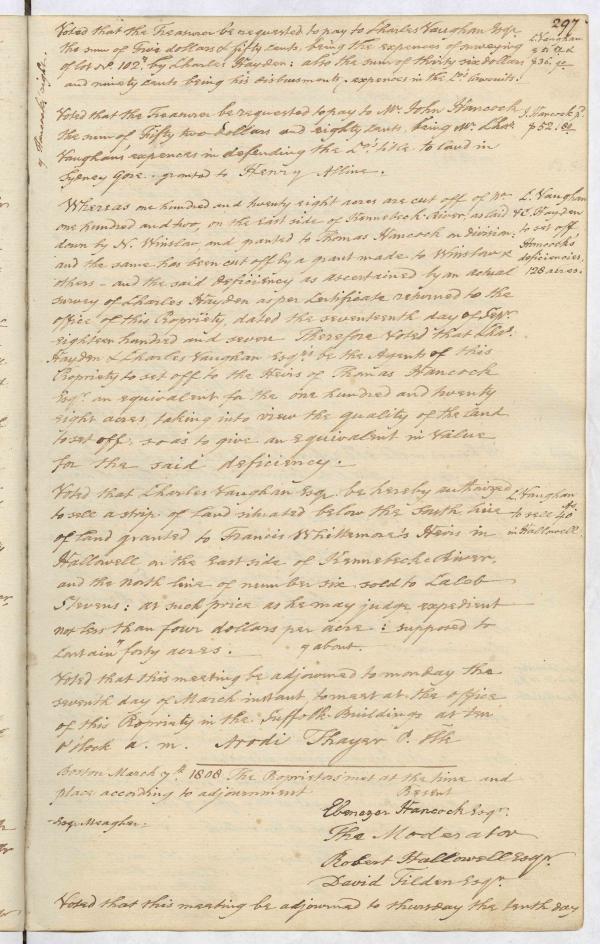 297
Voted that the Treasurer be requested to pay to Charles Vaughan Esqr
the sum of Five dollars & fifty cents, being the expences of surveying
of lot No. 102 by Charles Hayden: also the sum of thirty six dollars
and ninety cents being his disbursments & expences in the
C. Vaughan
Voted that the Treasurer be requested to pay to Mr. John Hancock
the sum of Fifty two dollars and eighty cents, being Mr. Chas.
Vaughan's expences in defending the title to land in
Sydney Gore granted to Henry Alline.
J. Hancock pd.
$52.80
Whereas one hundred and twenty eight acres are cut off of No
one hundred and two, on the east side of Kennebeck River, as laid
down by N. Winslow and granted to Thomas Hancock in division:
and the same has been cut off by a grant made to Winslow &
others - and the said deficiency as ascertained by an actual
survey of Charles Hayden as per Certificate returned to the
office of this Propriety, dated the seventeenth day of Sepr.
eighteen hundred and seven Therefore Voted that Chas.
Hayden & Charles Vaughan Esqrs. be the Agents of this
Propriety to set off to the Heirs of Thomas Hancock
Esqr. an equivalent for the one hundred and twenty
eight acres, taking into view the quality of the land
to set off, so as to give an equivalent in value
for the said deficiency.
C. Vaughan
& C. Hayden
to set off
Hancocks
deficiencies
128 acres.
Voted that Charles Vaughan Esq. be hereby authorized
to sell a strip of land situated below the South line
of land granted to Francis Whittemore's Heirs in
Hallowell on the East side of Kennebeck River,
and the North line of number six sold to Caleb
Stevens: at such price as he may judge expedient
not less than four dollars per acre: supposed to
Contain forty acres.
about.
C. Vaughan
to sell 40
in Hallowell
Voted that this meeting be adjourned to monday the
seventh day of March instant to meet at the office
of this Propriety in the Suffolk Buildings at ten
o'Clock a. m. Arodi Thayer P. Clk
Boston March 7th 1808 The Proprietors met at the time and
place according to adjournment
Present
Ebenezer Hancock Esqr.
The Moderator
Robert Hallowell Esqr.
David Tilden Esqr.
Voted that this meeting be adjourned to thursday the tenth day